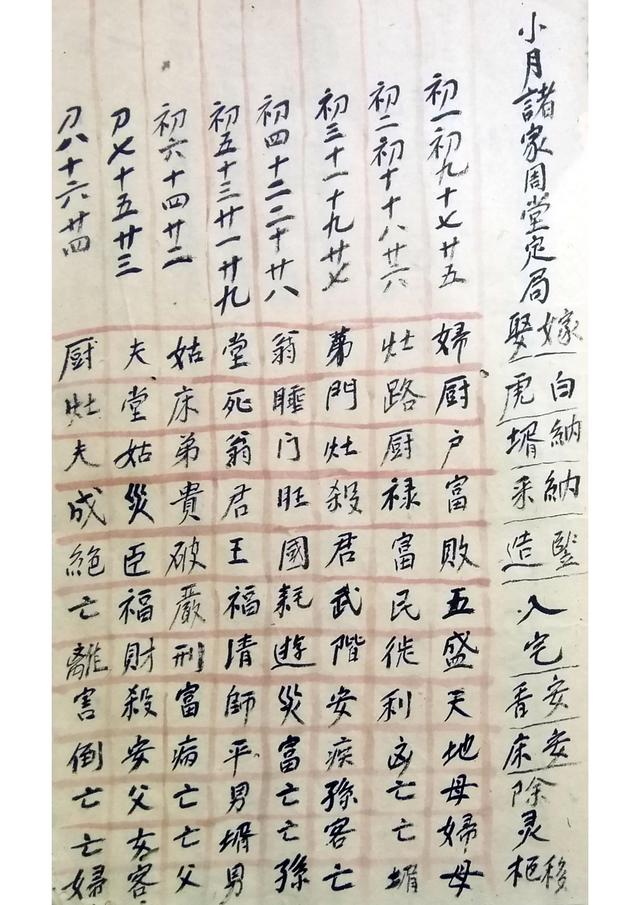 小月諸家周堂定局 嫁娶 白虎 納壻 納采 豎造 入宅 安香 安床 除灵 移柩
初一初九十七廿五 婦厨户富敗五盛天地母婦母
初二初十十八廿六 灶路厨禄富民徙利凶亡亡壻
初三十一十九廿七 第門灶殺君武階安疾孫客亡
初四十二二十廿八 翁睡门旺國耗遊災富亡亡孫
初五十三廿一廿九 堂死翁君王福清師平男壻男
初六十四廿二 姑床弟貴破嚴刑富病亡亡父
刀七十五廿三 夫堂姑災臣福財殺安父女客
刀八十六廿四 厨灶夫成絕亡離害倒亡亡婦